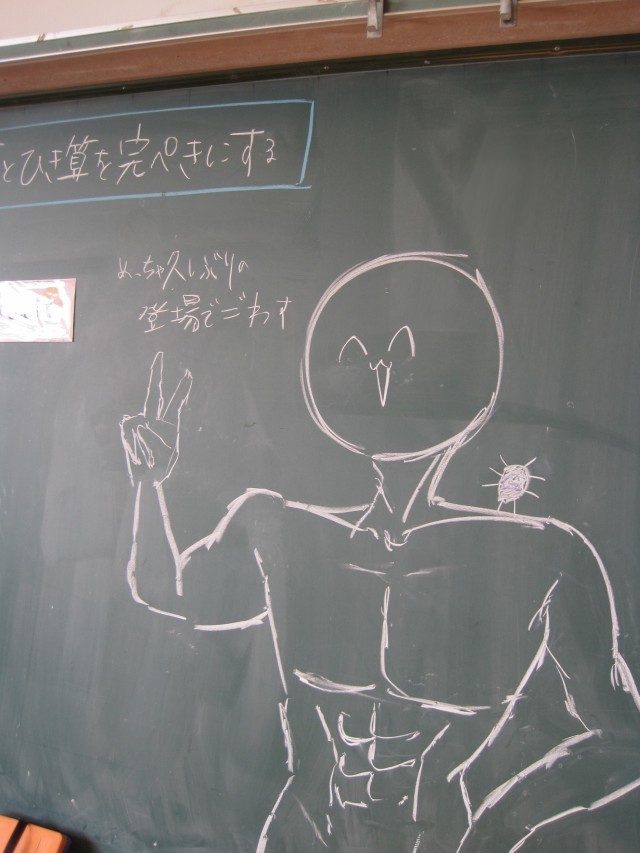 とひき算を完ぺきにする
めっちゃ久しぶりの
登場でごわす